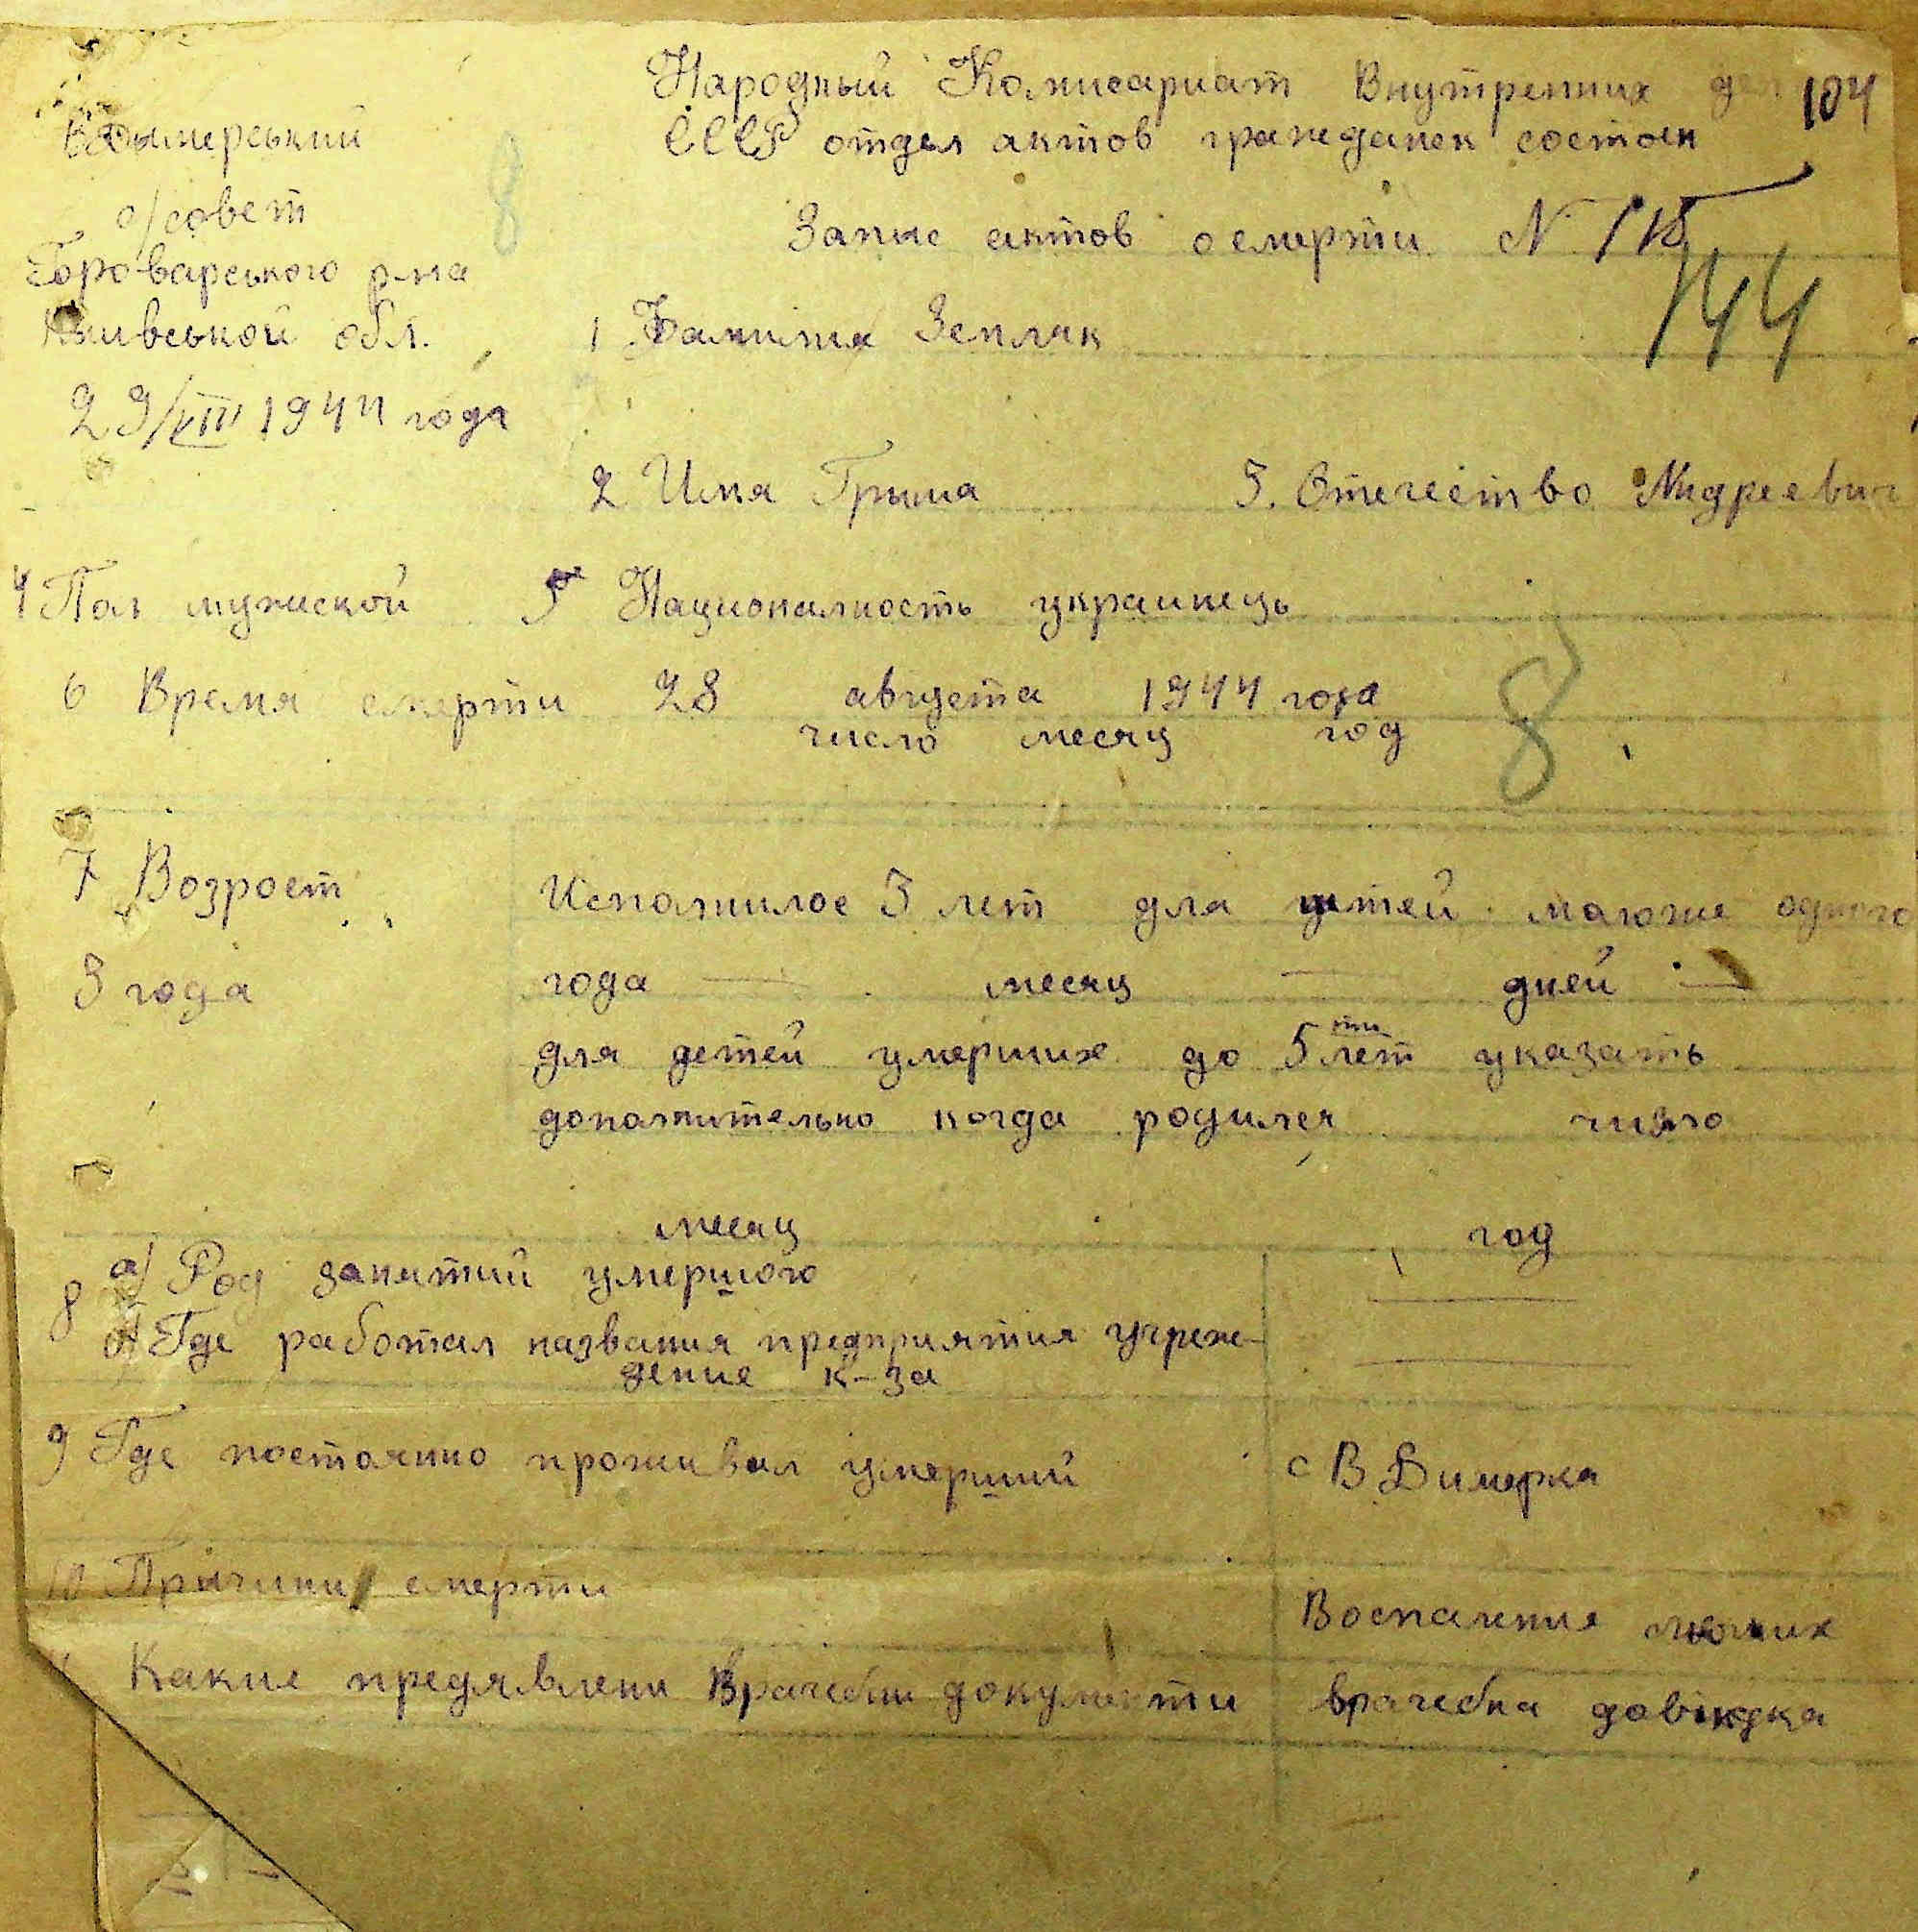 Народный Комисариат Внутренних дел 104
СССР отдел актов гражданск состоян
В Дымерський
с/совет
Броварського р-на
Киивськой обл.
29/VIII 1944 года
8
Запис актов о смерти N 118
144
1 Фамилия Земляк
2 Имя Гриша 3. Отечество Андреевич
4 Пол мужиской 5 Националность украинець
6 Время смерти 28 августа 1944 года
число месяц год
8
7 Возрост Исполнилое 3 лет для детей моложе одного
3 года года — месяц — дней —
для детей умерших до 5 ти лет указать
дополнительно когда родился число
месяц год
8 а) Род занятий умершого
б) Где работал названия предприятия учреж-
дение к-за
9 Где постоянно проживал умерший с В Димерка
10 Причини смерти Воспаления
11 Какие предявлени Врачебни документи врачебна довідка